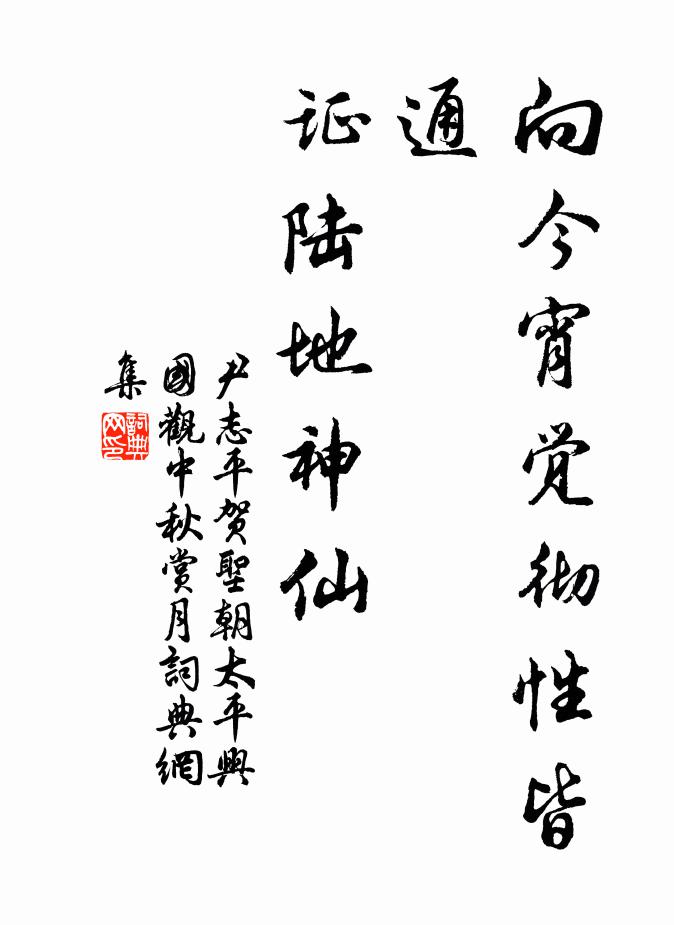 向今宵觉彻性皆
通
证陆地神仙
尹志平贺聖朝太平興
國觀中秋赏月詞典網
集
詞典
网印